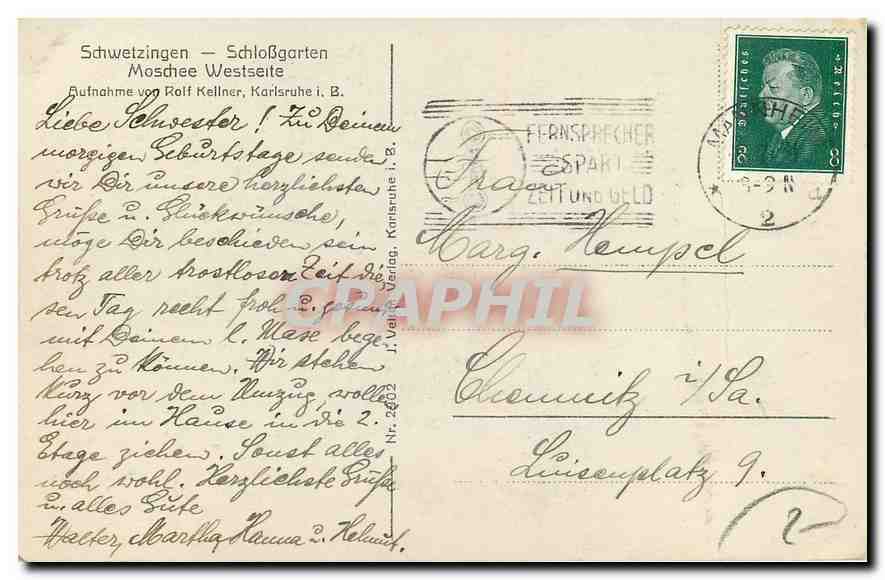 Schwetzingen — Schloßgarten
Moschee Westseite
Aufnahme von Rolf Kellner, Karlsruhe i. B.
Liebe Schwester! Zu Deinem
morgigen Geburtstage senden
wir Dir unsere herzlichsten
Grüße u. Glückwünsche,
möge Dir beschieden sein
trotz aller trostlosen Zeit die-
sen Tag recht froh u. gesund
mit Deinem l. Mase bege-
hen zu können. Wir stehen
kurz vor dem Umzug, wollen
hier im Hause in die 2.
Etage ziehen. Sonst alles
noch wohl. Herzlichste Grüße
u. alles Gute
Walter, Martha, Hanna u. Helmut.
Nr. 2602 J. Velten Verlag, Karlsruhe i. B.
FERNSPRECHER
SPART
ZEIT UND GELD
Deutsches Reich
8 8
MANNHEIM
8-9 N
2
Frau
Marg. Hempel
Chemnitz i/Sa.
Luisenplatz 9.
2
CPAPHIL